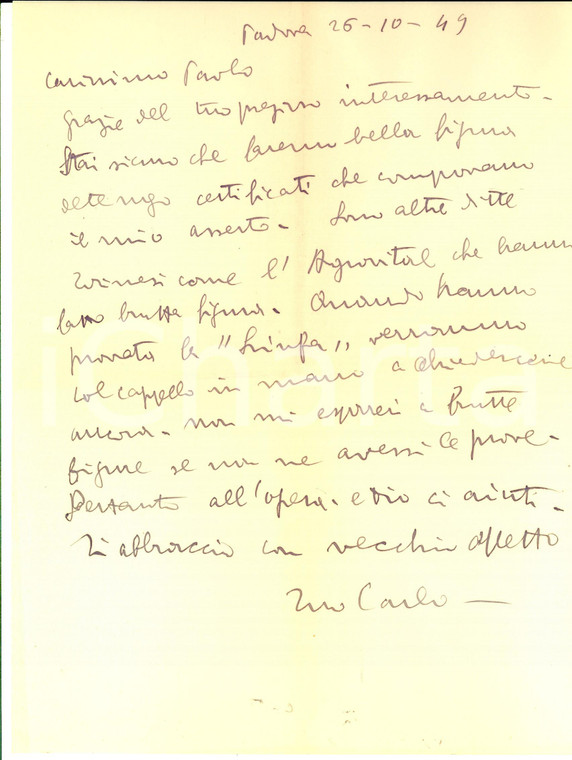 Padova 26-10-49
Carissimo Paolo
grazie del tuo prezioso interessamento -
Stai sicuro che faremo bella figura
detengo certificati che comprovano
il mio asserto - Sono altre ditte
torinesi come l'Agrovital che hanno
fatto brutta figura - Quando hanno
provato la "Linfa" verranno
col cappello in mano a chiedercene
ancora - non mi esporrei a brutte
figure se non ne avessi le prove -
Pertanto all'opera - e Dio ci aiuti -
Ti abbraccio con vecchio affetto
Tuo Carlo -